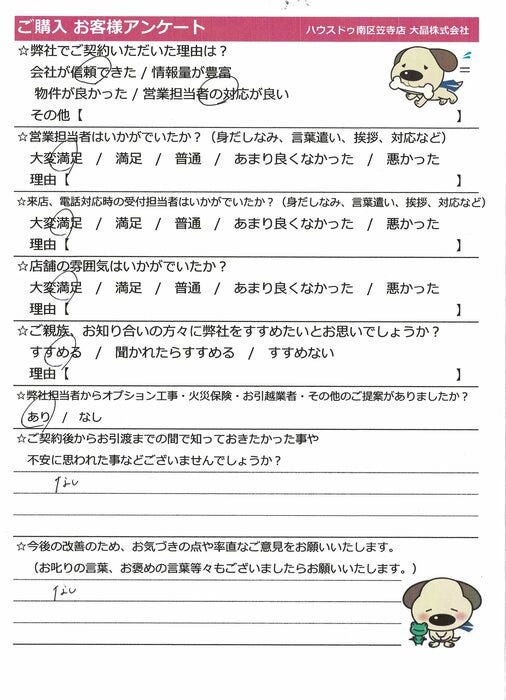 ご購入 お客様アンケート ハウスドゥ南区笠寺店 大晶株式会社
☆弊社でご契約いただいた理由は？
会社が信頼できた / 情報量が豊富
物件が良かった / 営業担当者の対応が良い
その他【 】
☆営業担当者はいかがでいたか？（身だしなみ、言葉遣い、挨拶、対応など）
大変満足 / 満足 / 普通 / あまり良くなかった / 悪かった
理由【 】
☆来店、電話対応時の受付担当者はいかがでいたか？（身だしなみ、言葉遣い、挨拶、対応など）
大変満足 / 満足 / 普通 / あまり良くなかった / 悪かった
理由【 】
☆店舗の雰囲気はいかがでいたか？
大変満足 / 満足 / 普通 / あまり良くなかった / 悪かった
理由【 】
☆ご親族、お知り合いの方々に弊社をすすめたいとお思いでしょうか？
すすめる / 聞かれたらすすめる / すすめない
理由【 】
☆弊社担当者からオプション工事・火災保険・お引越業者・その他のご提案がありましたか？
あり / なし
☆ご契約後からお引渡までの間で知っておきたかった事や
不安に思われた事などございませんでしょうか？
ない
☆今後の改善のため、お気づきの点や率直なご意見をお願いいたします。
（お叱りの言葉、お褒めの言葉等々もございましたらお願いいたします。）
ない